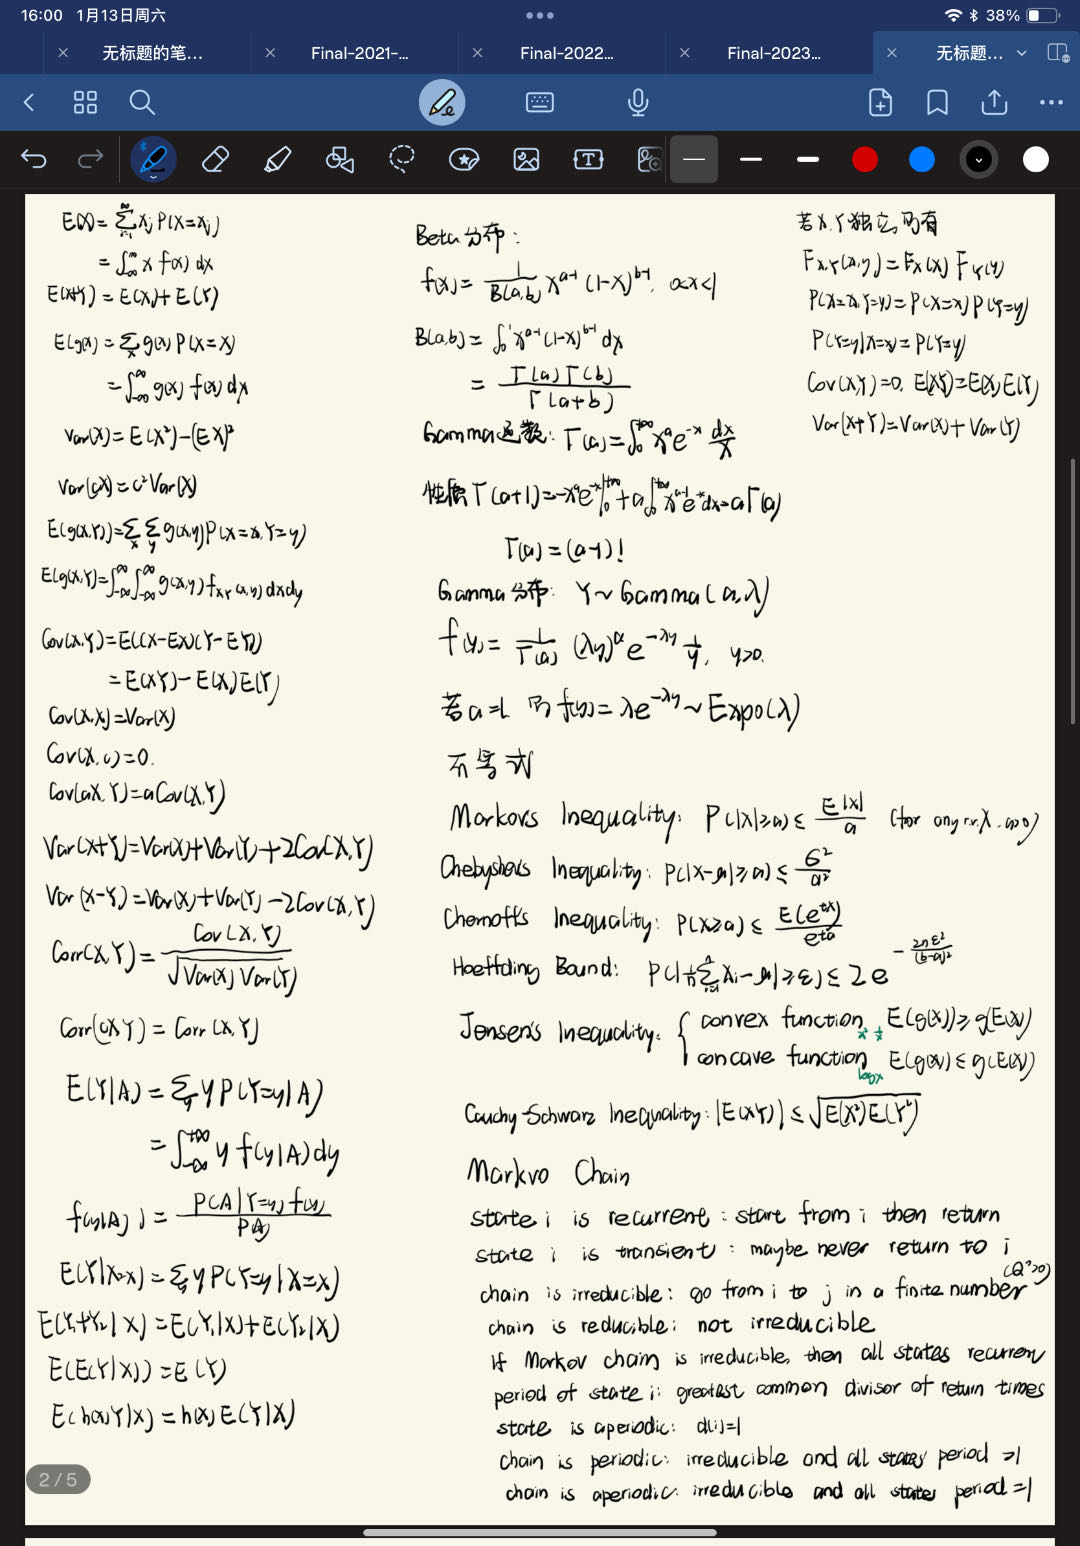 16:00 1月13日周六
38%
无标题的笔...
Final-2021-...
Final-2022...
Final-2023...
无标题...
E(X)=∑_{j=1}^{∞} x_j P(X=x_j)
=∫_{-∞}^{∞} x f(x) dx
E(X+Y)=E(X)+E(Y)
E(g(x))=∑_x g(x) P(X=x)
=∫_{-∞}^{∞} g(x) f(x) dx
Var(X)=E(X²)-(EX)²
Var(cX)=c²Var(X)
E(g(X,Y))=∑_x ∑_y g(x,y)P(X=x,Y=y)
E(g(X,Y))=∫_{-∞}^{∞}∫_{-∞}^{∞} g(x,y) f_{X,Y}(x,y) dxdy
Cov(X,Y)=E((X-EX)(Y-EY))
=E(XY)-E(X)E(Y)
Cov(X,X)=Var(X)
Cov(X,c)=0.
Cov(aX,Y)=aCov(X,Y)
Var(X+Y)=Var(X)+Var(Y)+2Cov(X,Y)
Var(X-Y)=Var(X)+Var(Y)-2Cov(X,Y)
Corr(X,Y)=Cov(X,Y)/√(Var(X)Var(Y))
Corr(cX,Y)=Corr(X,Y)
E(Y|A)=∑_y yP(Y=y|A)
=∫_{-∞}^{+∞} y f(y|A)dy
f(y|A))=P(A|Y=y)f(y)/P(A)
E(Y|X=x)=∑_y yP(Y=y|X=x)
E(Y₁+Y₂|X)=E(Y₁|X)+E(Y₂|X)
E(E(Y|X))=E(Y)
E(h(x)Y|X)=h(x)E(Y|X)
2/5
Beta分布:
f(x)=1/B(a,b) x^{a-1}(1-x)^{b-1}, 0<x<1
B(a,b)=∫_0^1 x^{a-1}(1-x)^{b-1}dx
=Γ(a)Γ(b)/Γ(a+b)
Gamma函数: Γ(a)=∫_0^{+∞} x^a e^{-x} dx/x
性质Γ(a+1)=-x^a e^{-x}|_0^{+∞}+a∫_0^{+∞}x^{a-1}e^{-x}dx=aΓ(a)
Γ(a)=(a-1)!
Gamma分布: Y~Gamma(a,λ)
f(y)=1/Γ(a) (λy)^a e^{-λy} 1/y, y>0.
若a=1 则f(y)=λe^{-λy}~Expo(λ)
不等式
Markovs Inequality: P(|X|≥a)≤E|X|/a (for any r.v. X, a>0)
Chebyshevs Inequality: P(|X-μ|≥a)≤σ²/a²
Chernoffs Inequality: P(X≥a)≤E(e^{tX})/e^{ta}
Hoeffding Bound: P(|1/n ∑_{i=1}^{n} X_i-μ|≥ε)≤2e^{-2nε²/(b-a)²}
Jensen's Inequality: { convex function x² 1/x E(g(X))≥g(E(X))
concave function logx E(g(X))≤g(E(X))
Cauchy-Schwarz Inequality: |E(XY)|≤√(E(X²)E(Y²))
Markvo Chain
state i is recurrent: start from i then return
state i is transient: maybe never return to i
chain is irreducible: go from i to j in a finite number (Qⁿ>0)
chain is reducible: not irreducible
If Markov chain is irreducible, then all states recurren
period of state i: greatest common divisor of return times
state is aperiodic: d(i)=1
chain is periodic: irreducible and all states period >1
chain is aperiodic: irreducible and all states period=1
若X,Y独立则有
F_{X,Y}(x,y)=F_X(x)F_Y(y)
P(X=x,Y=y)=P(X=x)P(Y=y)
P(Y=y|X=x)=P(Y=y)
Cov(X,Y)=0, E(XY)=E(X)E(Y)
Var(X+Y)=Var(X)+Var(Y)